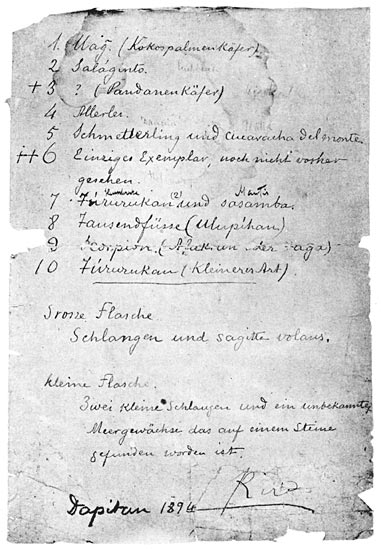 1. Uáġ. (Kokospalmenkäfer)
2 Saláginto.
+ 3 ? (Pandanenkäfer)
4 Allerlei
5 Schmetterling und cucaracha del monte
++ 6 Einziges Exemplar, noch nicht vorher
gesehen.
(2) Mantis
7 Fúrurukan und sasamba.
8 Tausendfüsse (Ulupihan)
9 Scorpion.
10 Fúrurukan (kleinere Art)
Grosse Flasche
Schlangen und sagitta volans.
kleine Flasche.
Zwei kleine Schlangen und ein unbekanntes
Meergewächse das auf einem Steine
gefunden worden ist.
Dapitan 1894